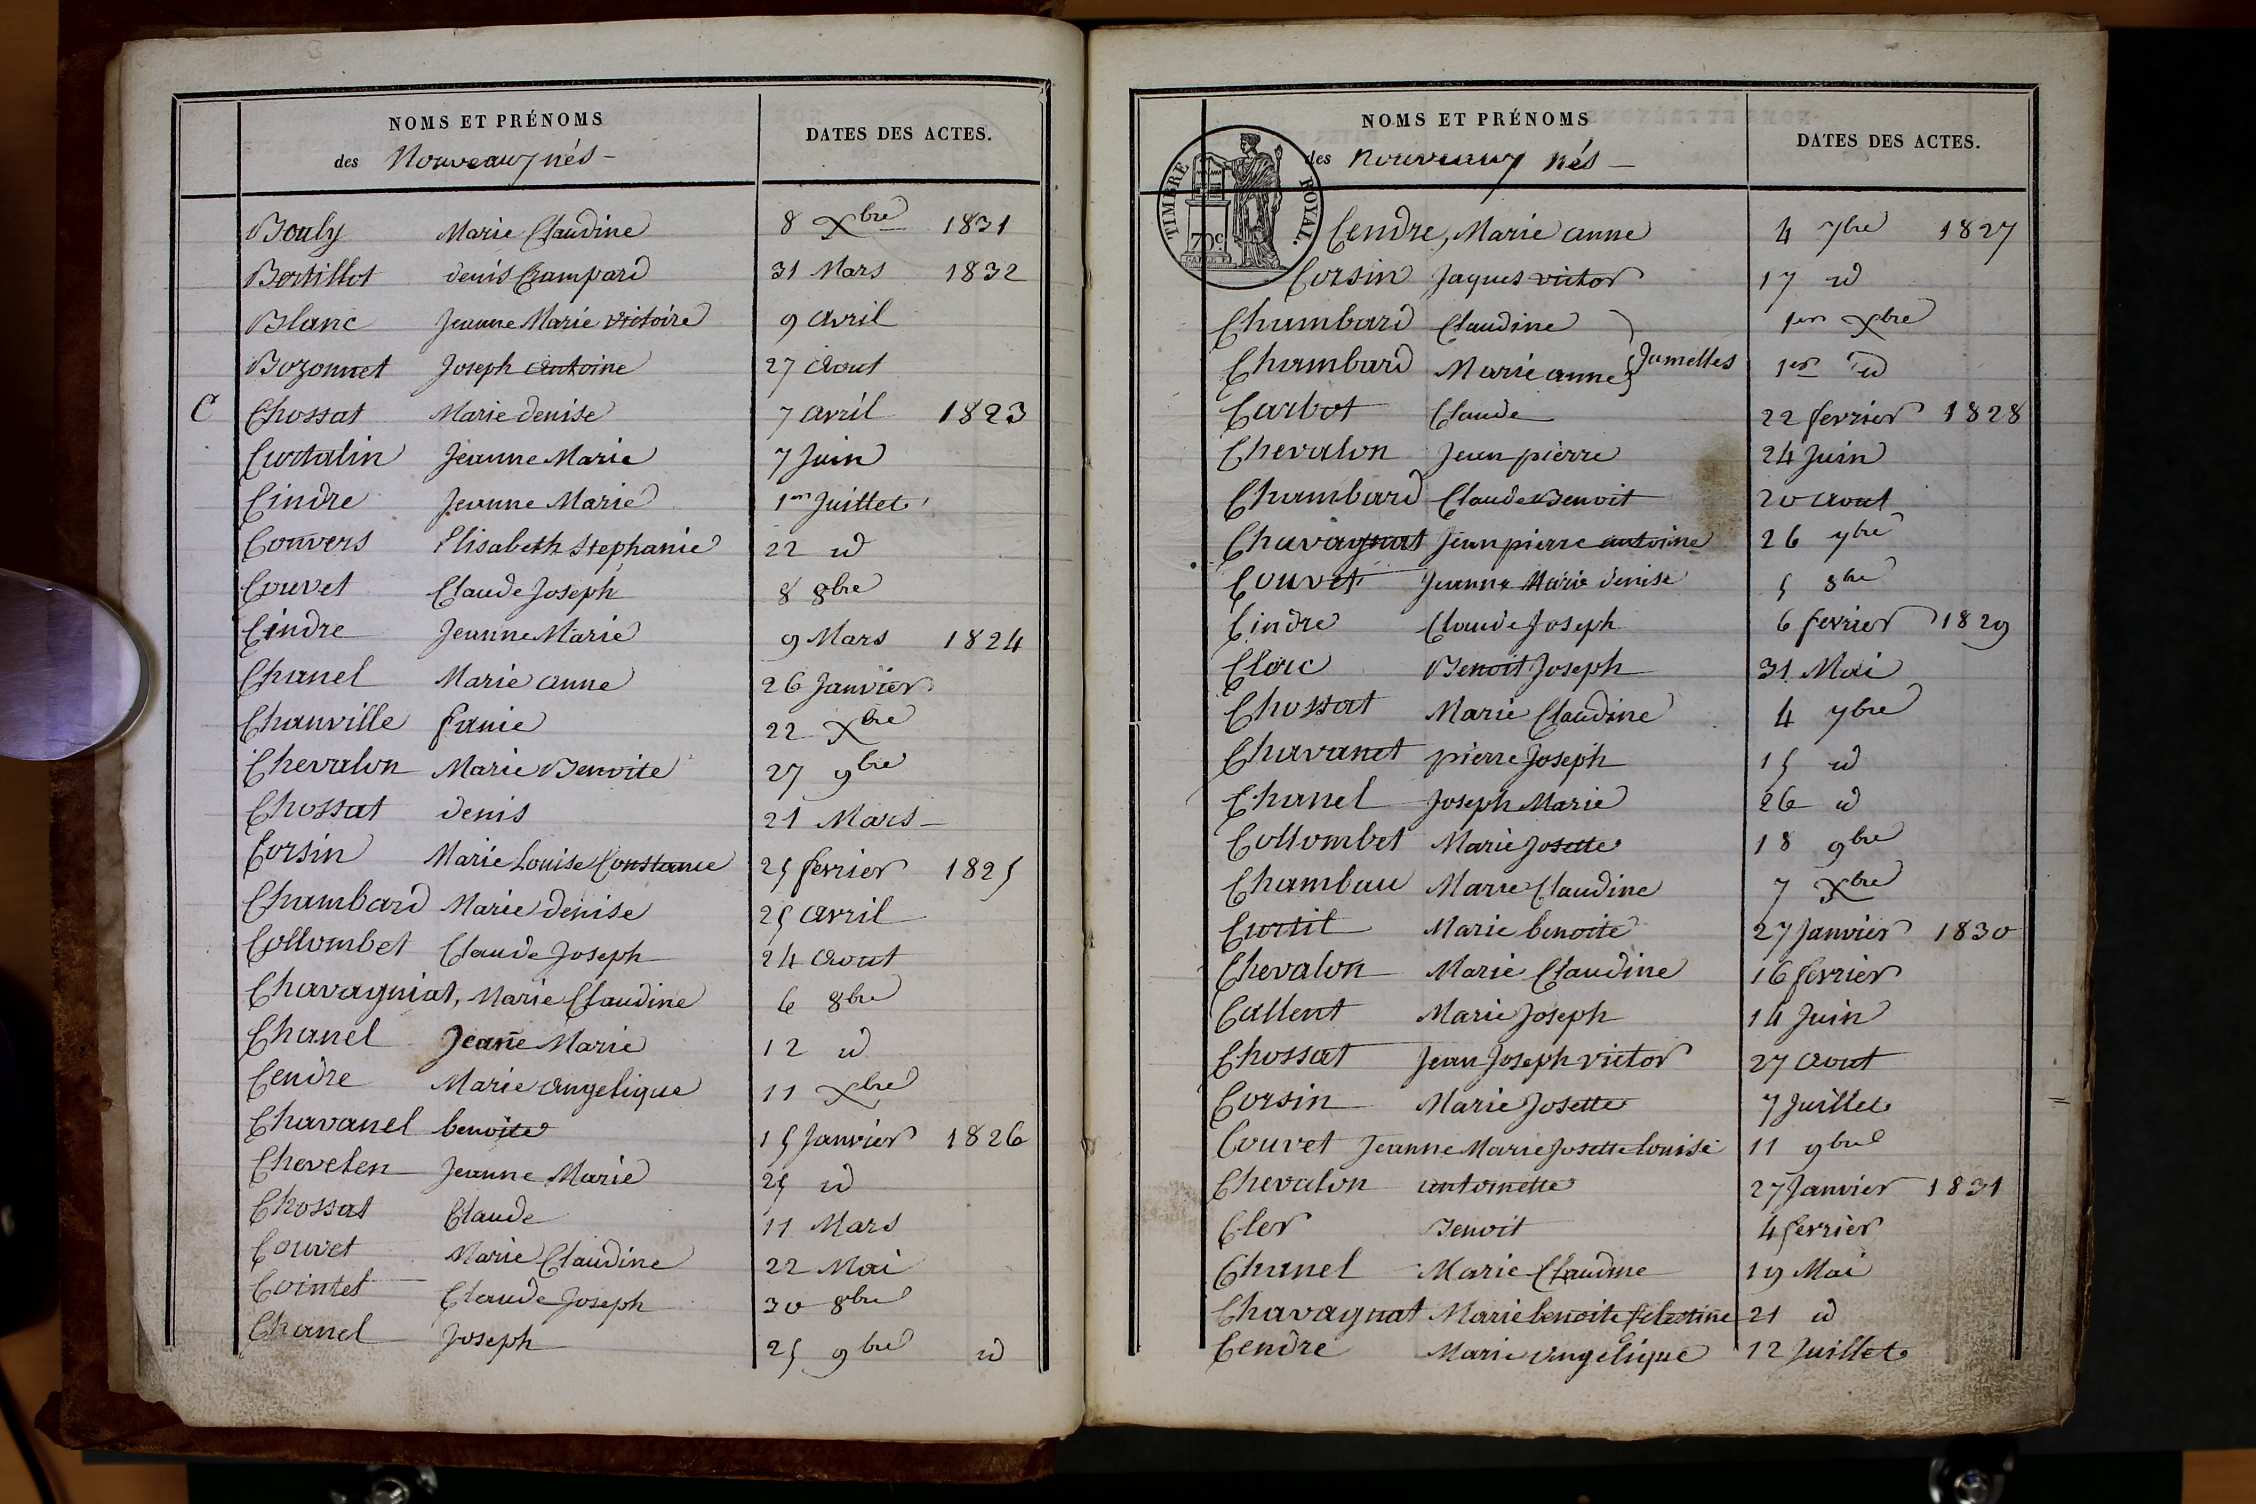 NOMS ET PRÉNOMS
DATES DES ACTES.
des Nouveaux nés
Bouly Marie Claudine 8 Xbre 1831
Bertillot denis Rampard 31 Mars 1832
Blanc Jeanne Marie victoire 9 avril
Bozonnet Joseph antoine 27 aout
C Chossat Marie denise 7 avril 1823
Curtalin Jeanne Marie 7 Juin
Cindre Jeanne Marie 1er Juillet
Convers Elisabeth Stephanie 22 id
Couvet Claude Joseph 8 8bre
Cindre Jeanne Marie 9 Mars 1824
Chanel Marie anne 26 Janvier
Chanville fanie 22 Xbre
Chevalon Marie Benoite 27 9bre
Chossat denis 21 Mars
Corsin Marie Louise Constance 25 fevrier 1825
Chambard Marie denise 25 avril
Collombet Claude Joseph 24 aout
Chavagniat, Marie Claudine 6 8bre
Chanel Jeañe Marie 12 id
Cendre Marie angelique 11 Xbre
Chavanel benoite 15 Janvier 1826
Chevelen Jeanne Marie 25 id
Chossat Claude 11 Mars
Couvet Marie Claudine 22 Mai
Cointet Claude Joseph 30 8bre
Chanel Joseph 25 9bre id
NOMS ET PRÉNOMS
DATES DES ACTES.
des nouveaux nés
TIMBRE ROYAL.
70 c.
Cendre, Marie anne 4 7bre 1827
Corsin Jaques victor 17 id
Chambard Claudine 1er Xbre
Chambard Marie anne Jumelles 1er id
Carbot Claude 22 fevrier 1828
Chevalon Jean pierre 24 Juin
Chambard Claude Benoit 20 aout
Chavagnat Jean pierre antoine 26 7bre
Couvet Jeanne Marie denise 5 8bre
Cindre Claude Joseph 6 fevrier 1829
Clerc Benoit Joseph 31 Mai
Chossat Marie Claudine 4 7bre
Chavanet pierre Joseph 15 id
Chanel Joseph Marie 26 id
Collombet Marie Josette 18 9bre
Chambau Marie Claudine 7 Xbre
Curtil Marie benoite 27 Janvier 1830
Chevalon Marie Claudine 16 fevrier
Callent Marie Joseph 14 Juin
Chossat Jean Joseph victor 27 aout
Corsin Marie Josette 7 Juillet
Couvet Jeanne Marie Josette louise 11 9bre
Chevalon antoinette 27 Janvier 1831
Cler Benoit 4 fevrier
Chanel Marie Claudine 19 Mai
Chavagnat Marie benoite felestine 21 id
Cendre Marie angelique 12 Juillet